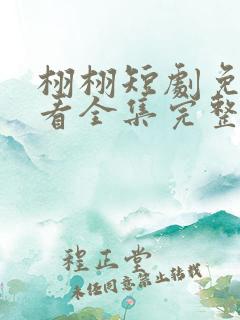 栩栩短劇免
看全集完整
程正堂
未經同意禁止轉載